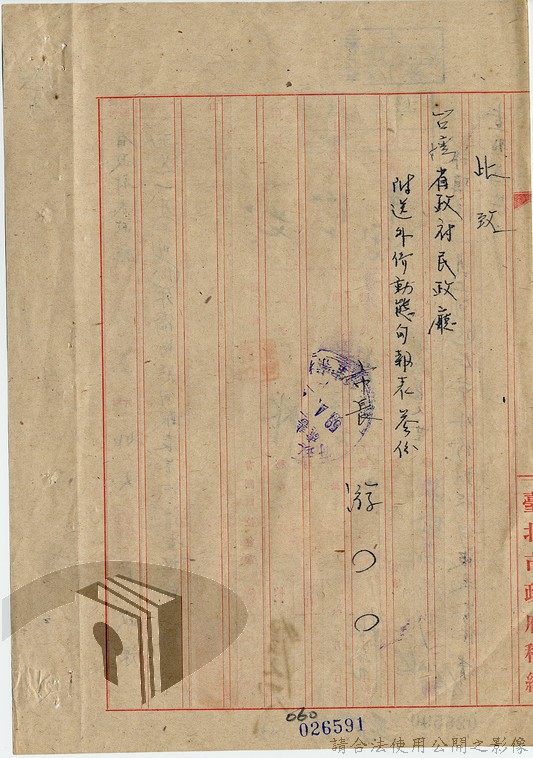 此致
台灣省政府民政廳
附送外僑動態旬報表叁份
市長 游〇〇
臺北市政府稿紙
060
026591
請合法使用公開之影像